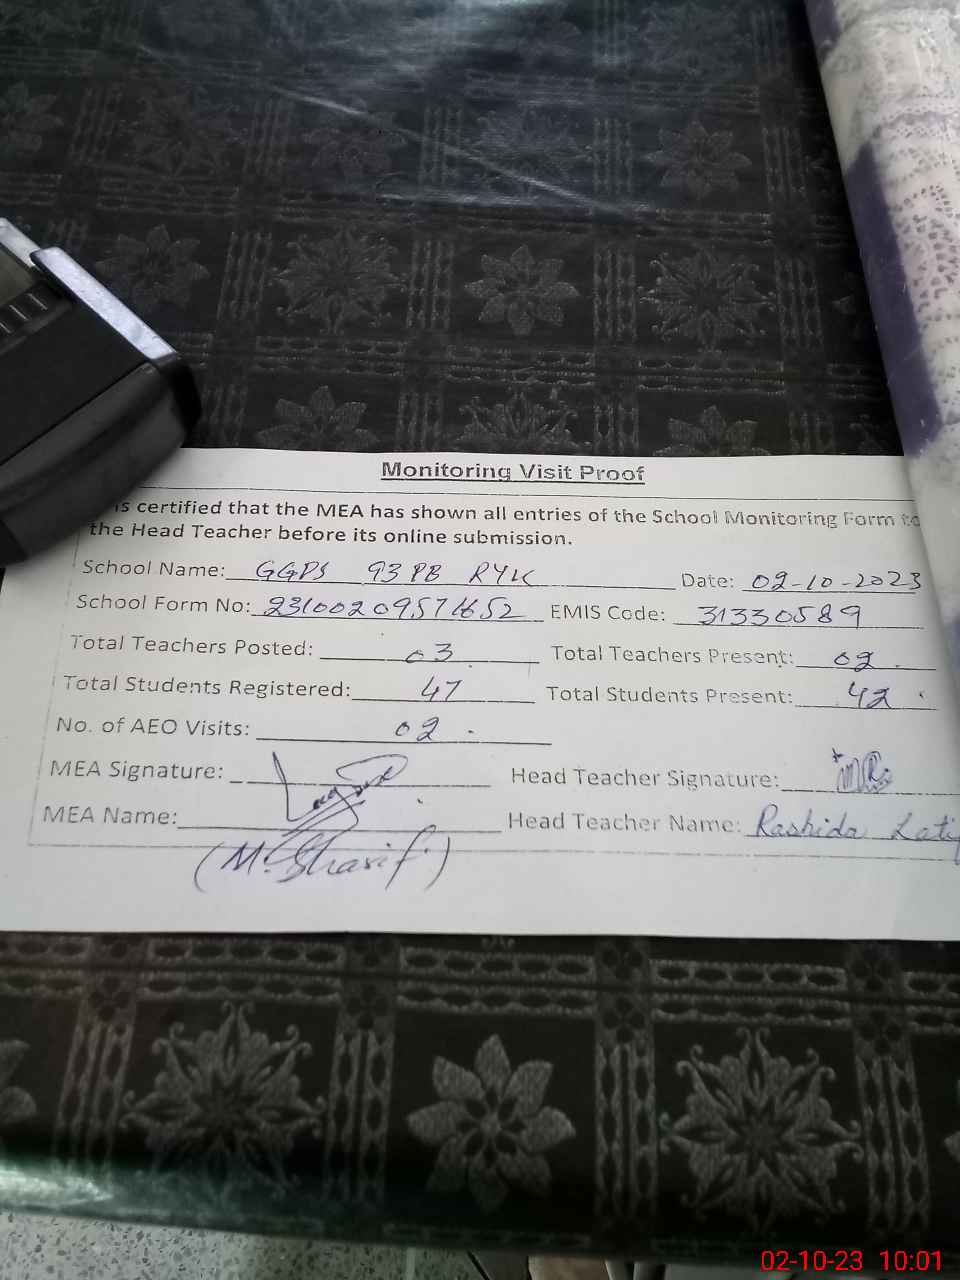 Monitoring Visit Proof
is certified that the MEA has shown all entries of the School Monitoring Form to
the Head Teacher before its online submission.
School Name: GGPS 93 PB RYK Date: 02-10-2023
School Form No: EMIS Code: 31330589
Total Teachers Posted: 03 Total Teachers Present: 02
Total Students Registered: 47 Total Students Present: 42
No. of AEO Visits: 02
MEA Signature: Head Teacher Signature:
MEA Name: Head Teacher Name: Rashida
(M. Sharif)
02-10-23 10:01